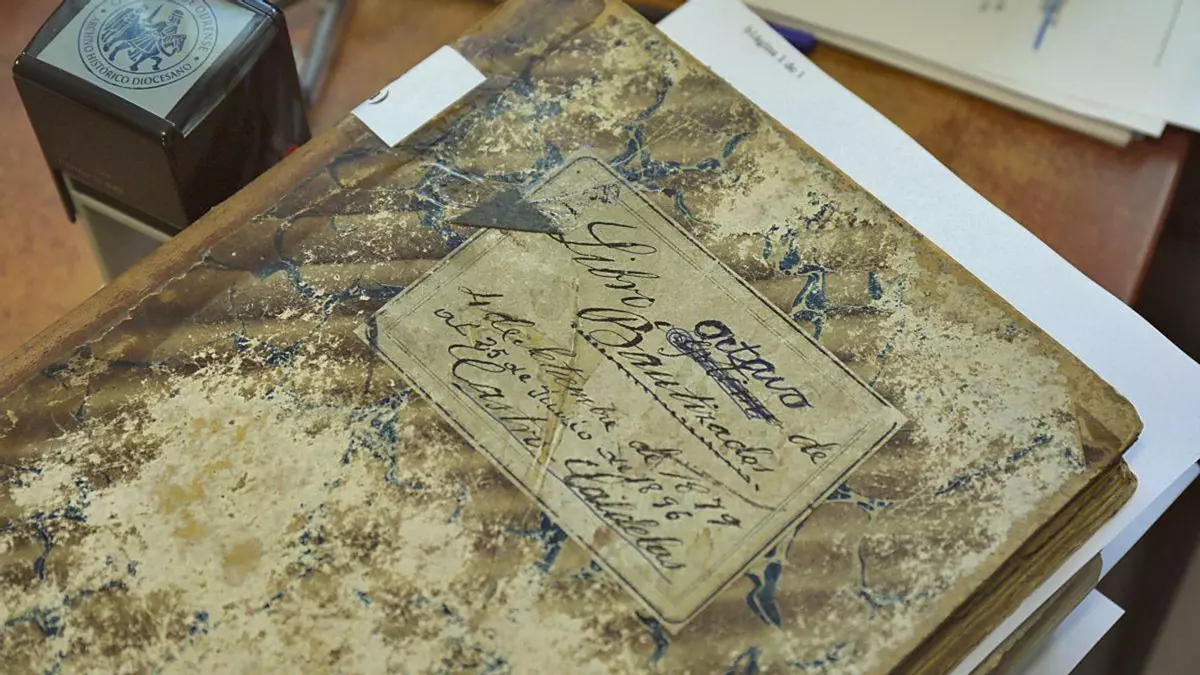 OURENSE
ARCHIVO HISTÓRICO DIOCESANO
Página 1 de 1
Libro octavo de
Bautizados
4 de Setombre de 1879
al 25 de Junio de 1896
Castro Caldelas